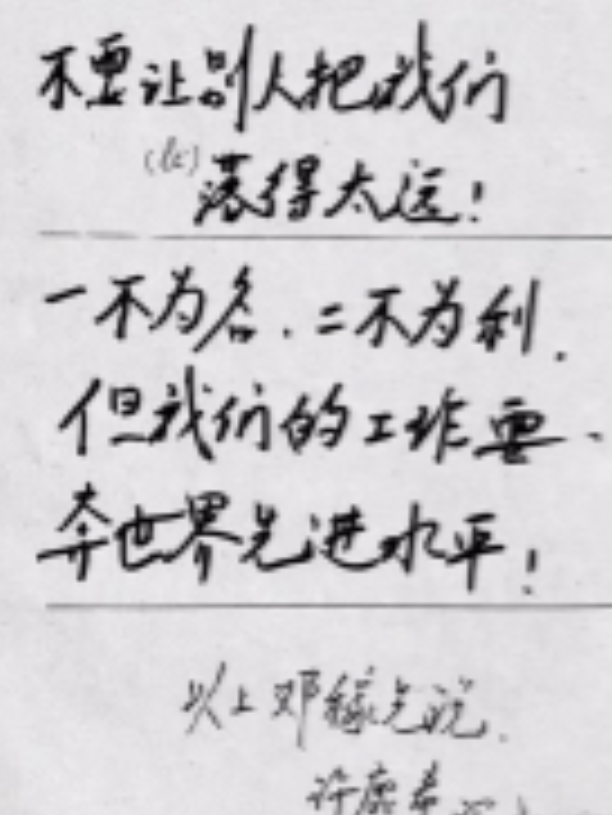 不要让别人把我们
(la)
落得太远！
一不为名、二不为利.
但我们的工作要
奔世界先进水平！
以上邓稼先说.
许鹿希